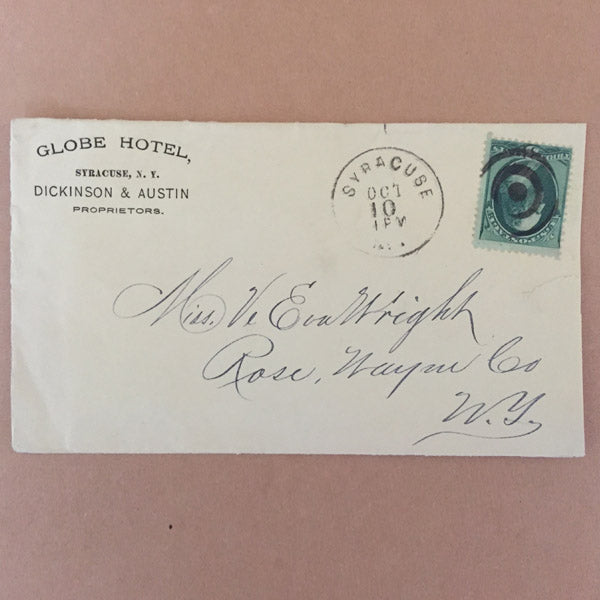 GLOBE HOTEL,
SYRACUSE, N. Y.
DICKINSON & AUSTIN
PROPRIETORS.
SYRACUSE
OCT
10
1PM
Miss. Ve Eva Wright
Rose, Wayne Co
N.Y.